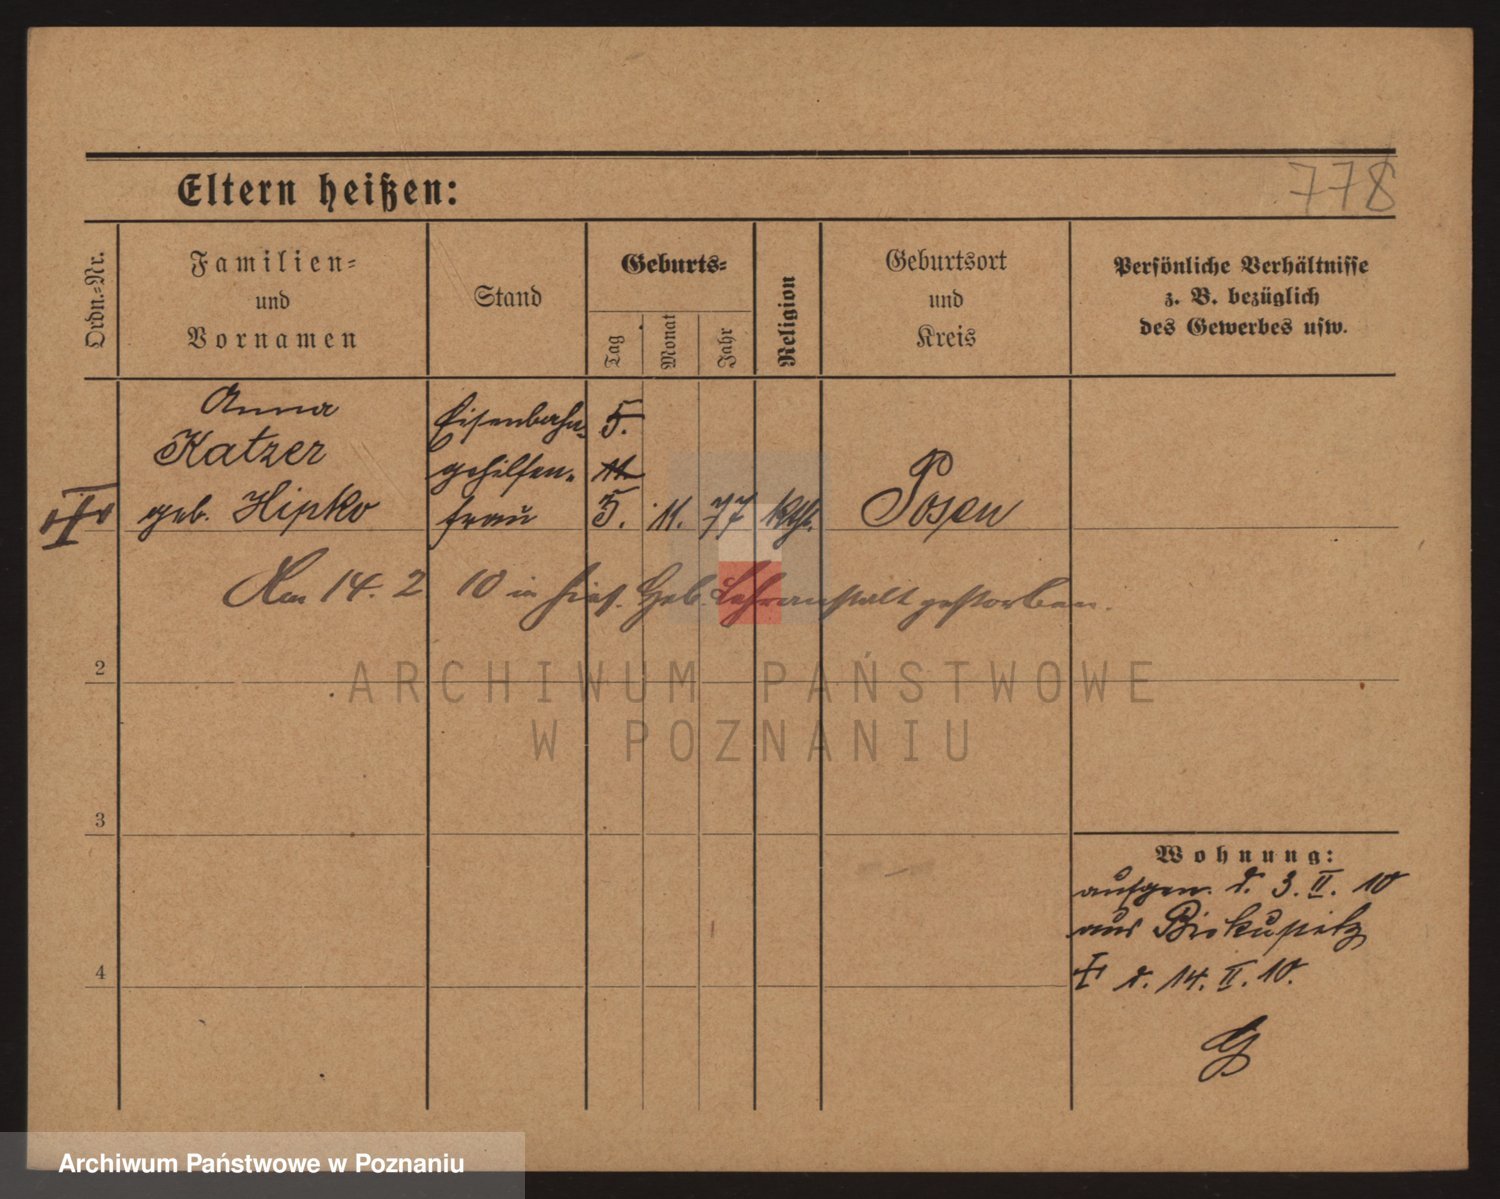 778
Eltern heißen:
Ordn.=Nr.
Familien=
und
Vornamen
Stand
Geburts=
Tag
Monat
Jahr
Religion
Geburtsort
und
Kreis
Persönliche Verhältnisse
z. B. bezüglich
des Gewerbes usw.
Anna
Katzer
geb. Hipko
Eisenbahn-
gehilfen-
frau
5.
11
5. 11. 77 kth. Posen
Am 14. 2 10 in hies. Heb. Lehranstalt gestorben.
2
ARCHIWUM PAŃSTWOWE
W POZNANIU
3
Wohnung:
aufgen. d. 3. II. 10
aus Biskupitz
4
† d. 14. II. 10.
Archiwum Państwowe w Poznaniu